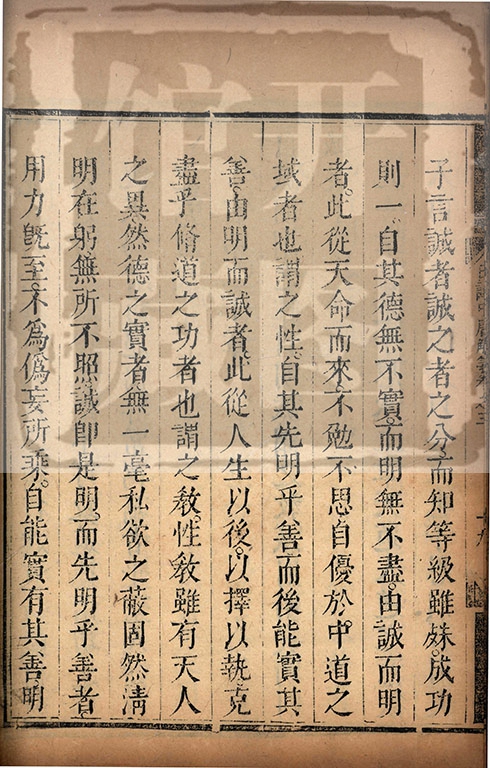 子言誠者誠之者之分而知等級雖殊。成功
則一。自其德無不實。而明無不盡。由誠而明
者。此從天命而來。不勉不思自優於中道之
域者也。謂之性。自其先明乎善而後能實其
善。由明而誠者。此從人生以後。以擇以執。克
盡乎脩道之功者也。謂之敎。性敎雖有天人
之異。然德之實者無一毫私欲之蔽。固然淸
明在躬。無所不照。誠卽是明。而先明乎善者
用力旣至。不爲僞妄所乘。自能實有其善。明